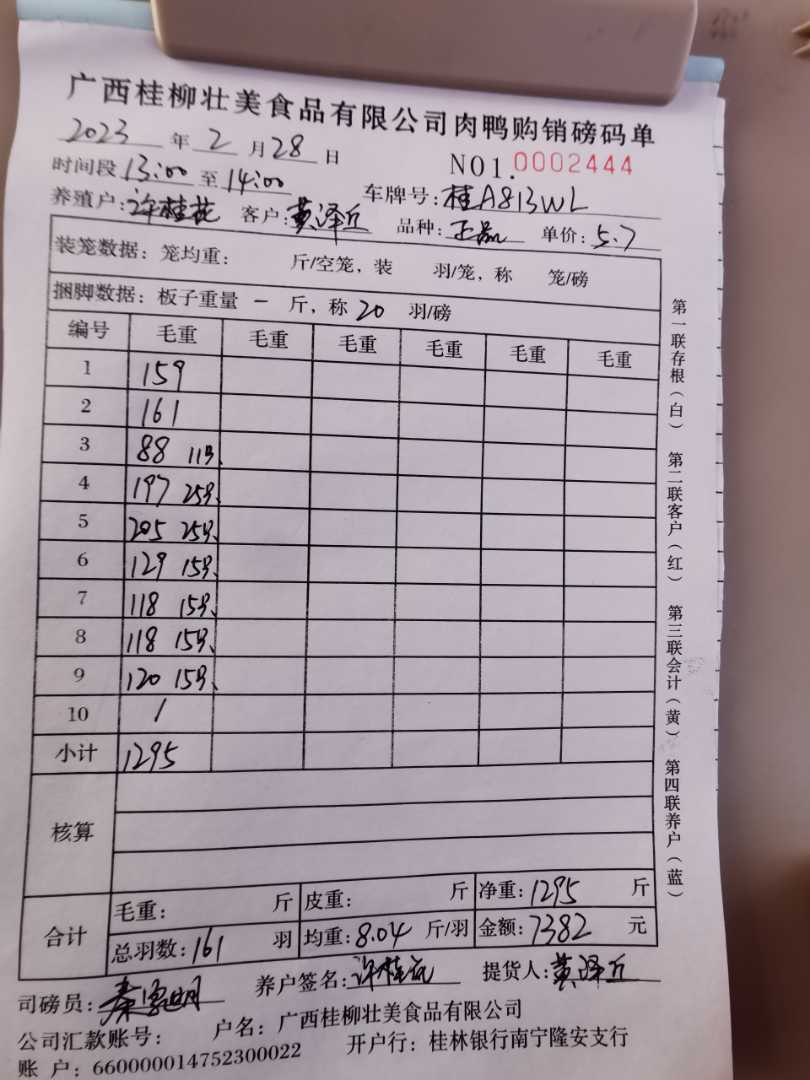 广西桂柳壮美食品有限公司肉鸭购销磅码单
2023 年 2 月 28 日 NO1.0002444
时间段 13:00 至 14:00 车牌号: 桂A813WL
养殖户: 许桂花 客户: 黄泽丘 品种: 正品 单价: 5.7
装笼数据: 笼均重: 斤/空笼, 装 羽/笼, 称 笼/磅
捆脚数据: 板子重量 一 斤, 称 20 羽/磅
编号 毛重 毛重 毛重 毛重 毛重 毛重
1 159
2 161
3 88 11羽
4 197 25羽
5 205 25羽
6 129 15羽
7 118 15羽
8 118 15羽
9 120 15羽
10 /
小计 1295
核算
合计
毛重: 斤 皮重: 斤 净重: 1295 斤
总羽数: 161 羽 均重: 8.04 斤/羽 金额: 7382 元
司磅员: 养户签名: 许桂花 提货人: 黄泽丘
公司汇款账号: 户名: 广西桂柳壮美食品有限公司
账 户: 660000014752300022 开户行: 桂林银行南宁隆安支行
第一联存根(白) 第二联客户(红) 第三联会计(黄) 第四联养户(蓝)